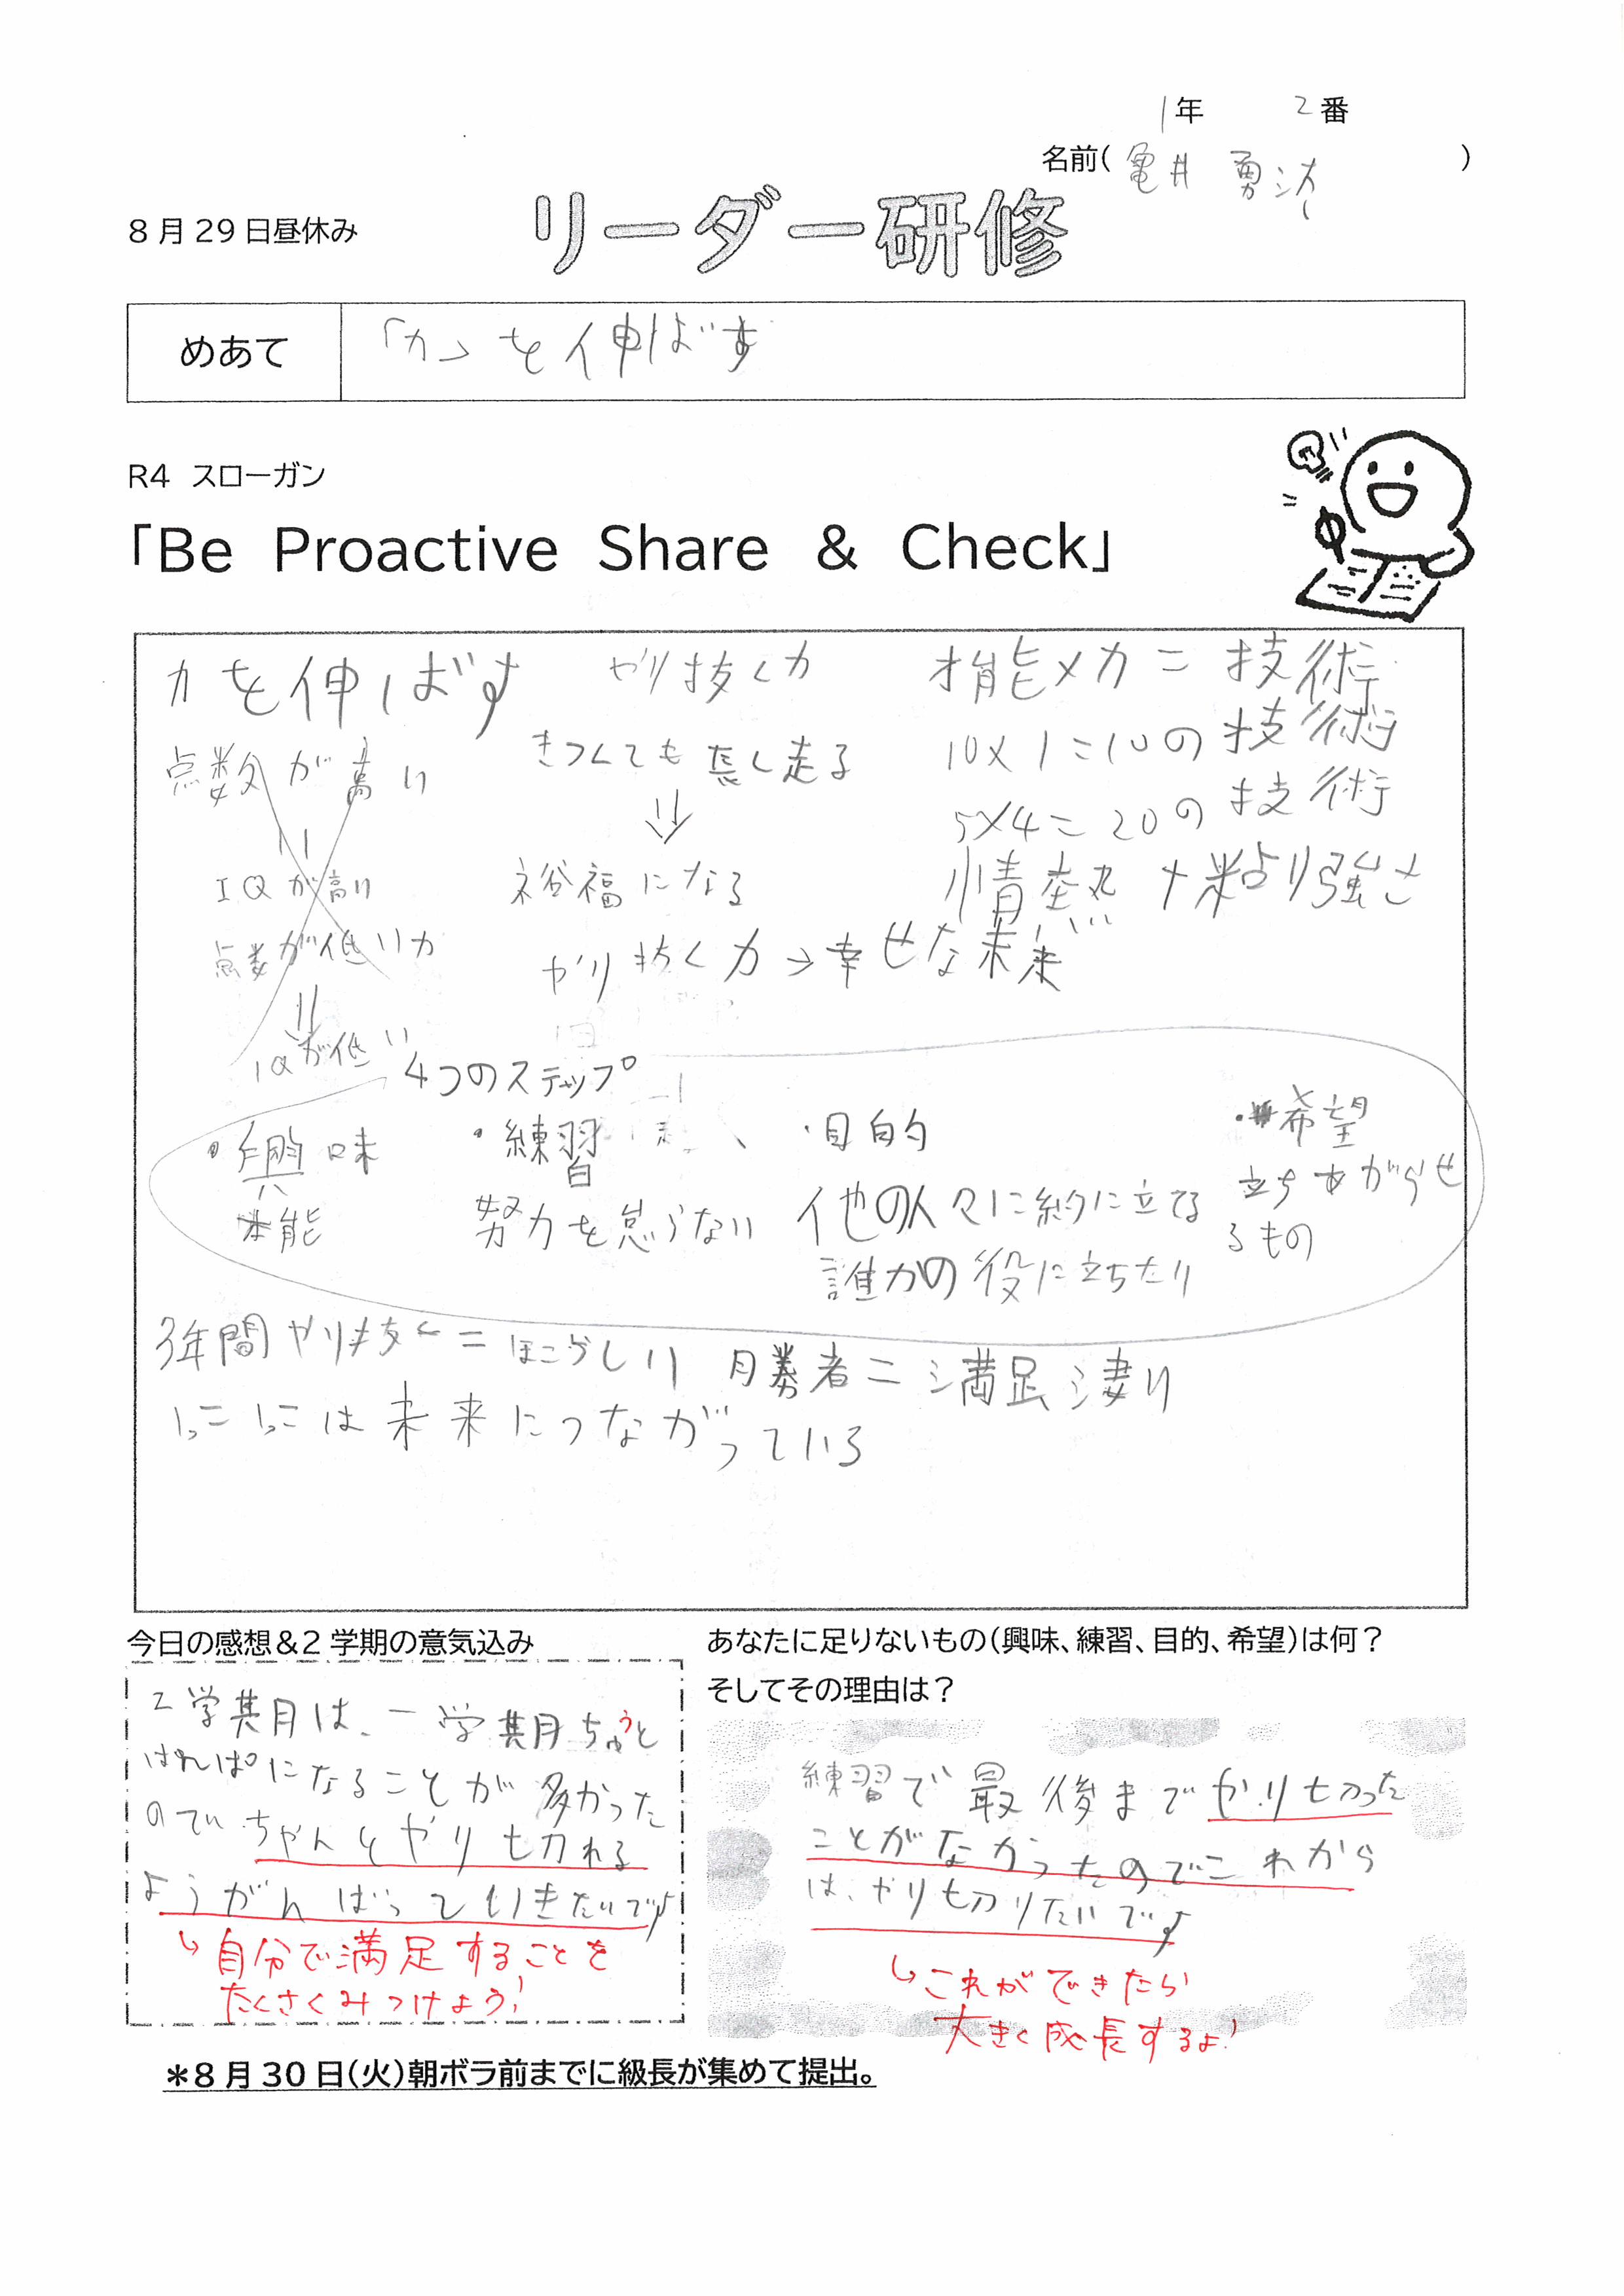 1年 2番
名前( 亀井 勇 )
8月29日昼休み
リーダー研修
めあて
「力」を伸ばす
R4 スローガン
「Be Proactive Share & Check」
力を伸ばす
点数が高い
IQが高い
点数が低い力
IQが低い
やり抜く力
きつくても長く走る
裕福になる
やり抜く力→幸せな未来
才能×力=技術
10×1=10の技術
5×4=20の技術
情熱+粘り強さ
4つのステップ
・興味
本能
・練習
努力を怠らない
・目的
他の人々に約に立てる
誰かの役に立ちたい
・希望
立ちあがらせ
るもの
3年間やり抜く=ほこらしい 勝者=満足凄い
1つ1つは未来につながっている
今日の感想&2学期の意気込み
2学期は、一学期ちゅうと
はんぱになることが多かった
のでちゃんとやり切れる
ようがんばっていきたいです
↳自分で満足することを
たくさくみつけよう!
あなたに足りないもの(興味、練習、目的、希望)は何?
そしてその理由は?
練習で最後までやり切った
ことがなかったのでこれから
は、やり切りたいです
↳これができたら
大きく成長するよ!
*8月30日(火)朝ボラ前までに級長が集めて提出。